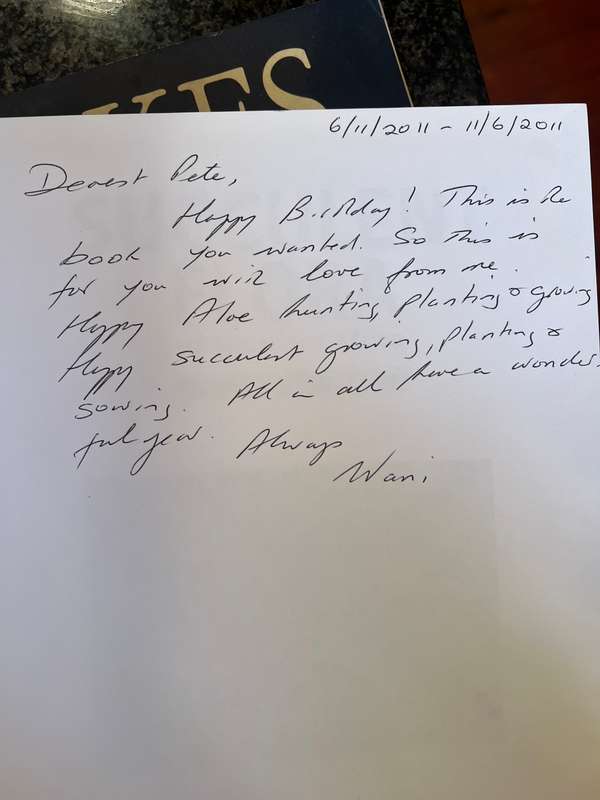 KES
6/11/2011 - 11/6/2011
Dearest Pete,
Happy Birthday! This is the
book you wanted. So this is
for you with love from me.
Happy Aloe hunting, planting & growing
Happy Succulent growing, planting &
sowing. All in all have a wonder-
ful year. Always
Wani